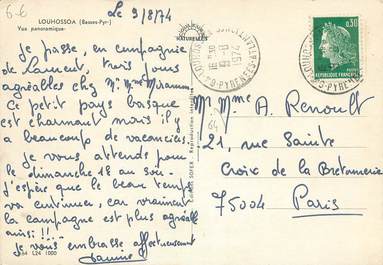 6-6
LOUHOSSOA (Basses-Pyr.)
Vue panoramique.
Le 9/8/74
NATURELLES
Je passe, en compagnie
de Laurent, trois jours
agréables chez Mr Mme
Ce petit pays basque
est charmant mais il y
a beaucoup de vacanciers.
Je vous attends pour
le dimanche 18 au soir.
J'espère que le beau temps
va continuer, car vraiment
la campagne est plus agréable
ainsi !!!
Je vous embrasse affectueusement
64 L24 1000
Editions SOFER
0,30
REPUBLIQUE FRANÇAISE
1974
Mr Mme A. Renoult
21, rue Sainte
Croix de la Bretonnerie
75004 Paris